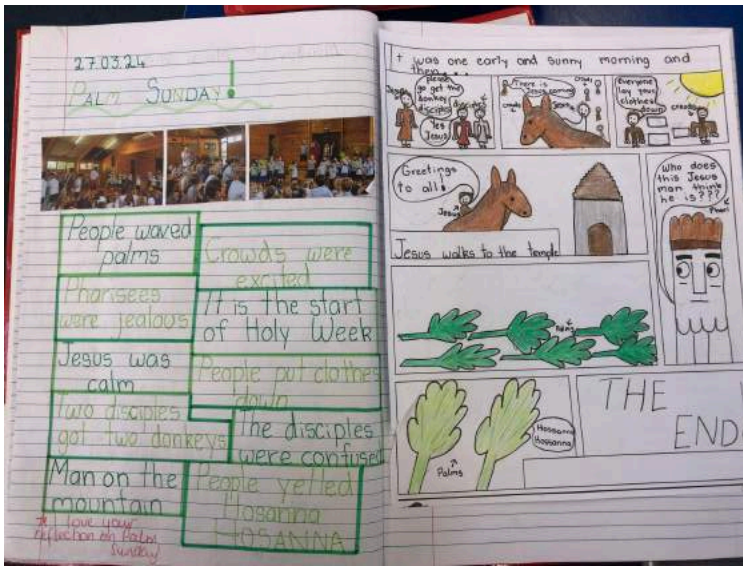 27.03.24
PALM SUNDAY!
People waved
palms
Crowds were
excited
Pharisees
were jealous
It is the start
of Holy Week
Jesus was
calm
People put clothes
down
Two disciples
got two donkeys
The disciples
were confused
Man on the
mountain
People yelled
Hosanna
HOSANNA
I love your
reflection on Palm
Sunday
It was one early and sunny morning and
then...
Jesus
please
go get the
donkey
disciples
disciples
Yes
Jesus
There is
Jesus coming
crowds
crowds
Jesus
everyone
lay your
clothes
down
crowds
Greetings
to all!
Jesus
Jesus walks to the temple
Who does
this Jesus
man think
he is???
Palms
Palms
Hossanna
Hossanna
THE
END